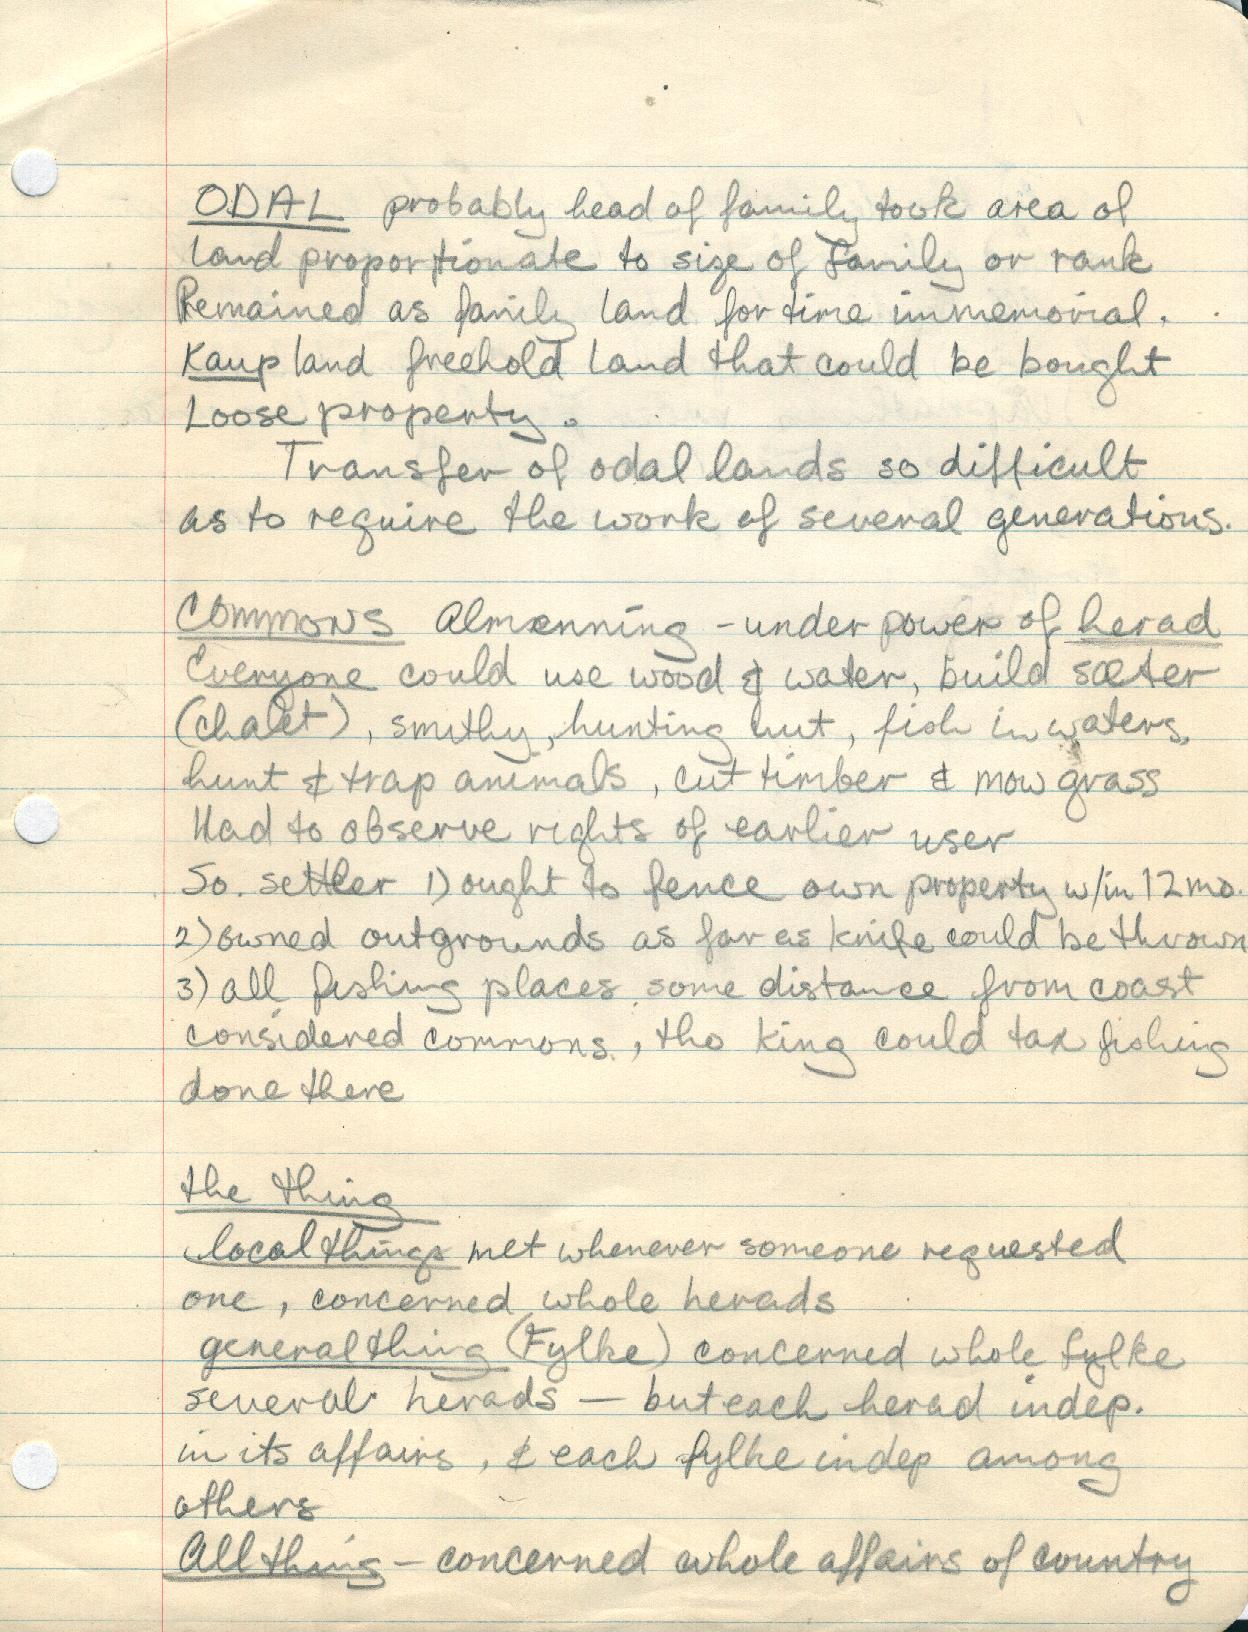 ODAL probably head of family took area of
land proportionate to size of family or rank
Remained as family land for time immemorial.
Kaup land freehold land that could be bought
Loose property.
Transfer of odal lands so difficult
as to require the work of several generations.
COMMONS Almenning - under power of herad
Everyone could use wood & water, build sæter
(chalet), smithy, hunting hut, fish in waters,
hunt & trap animals, cut timber & mow grass
Had to observe rights of earlier user
So. settler 1) ought to fence own property w/in 12 mo.
2) owned outgrounds as far as knife could be thrown
3) all fishing places some distance from coast
considered commons, tho king could tax fishing
done there
the thing
local things met whenever someone requested
one, concerned whole herads
general thing (Fylke) concerned whole fylke
several herads — but each herad indep.
in its affairs, & each fylke indep among
others
All thing - concerned whole affairs of country